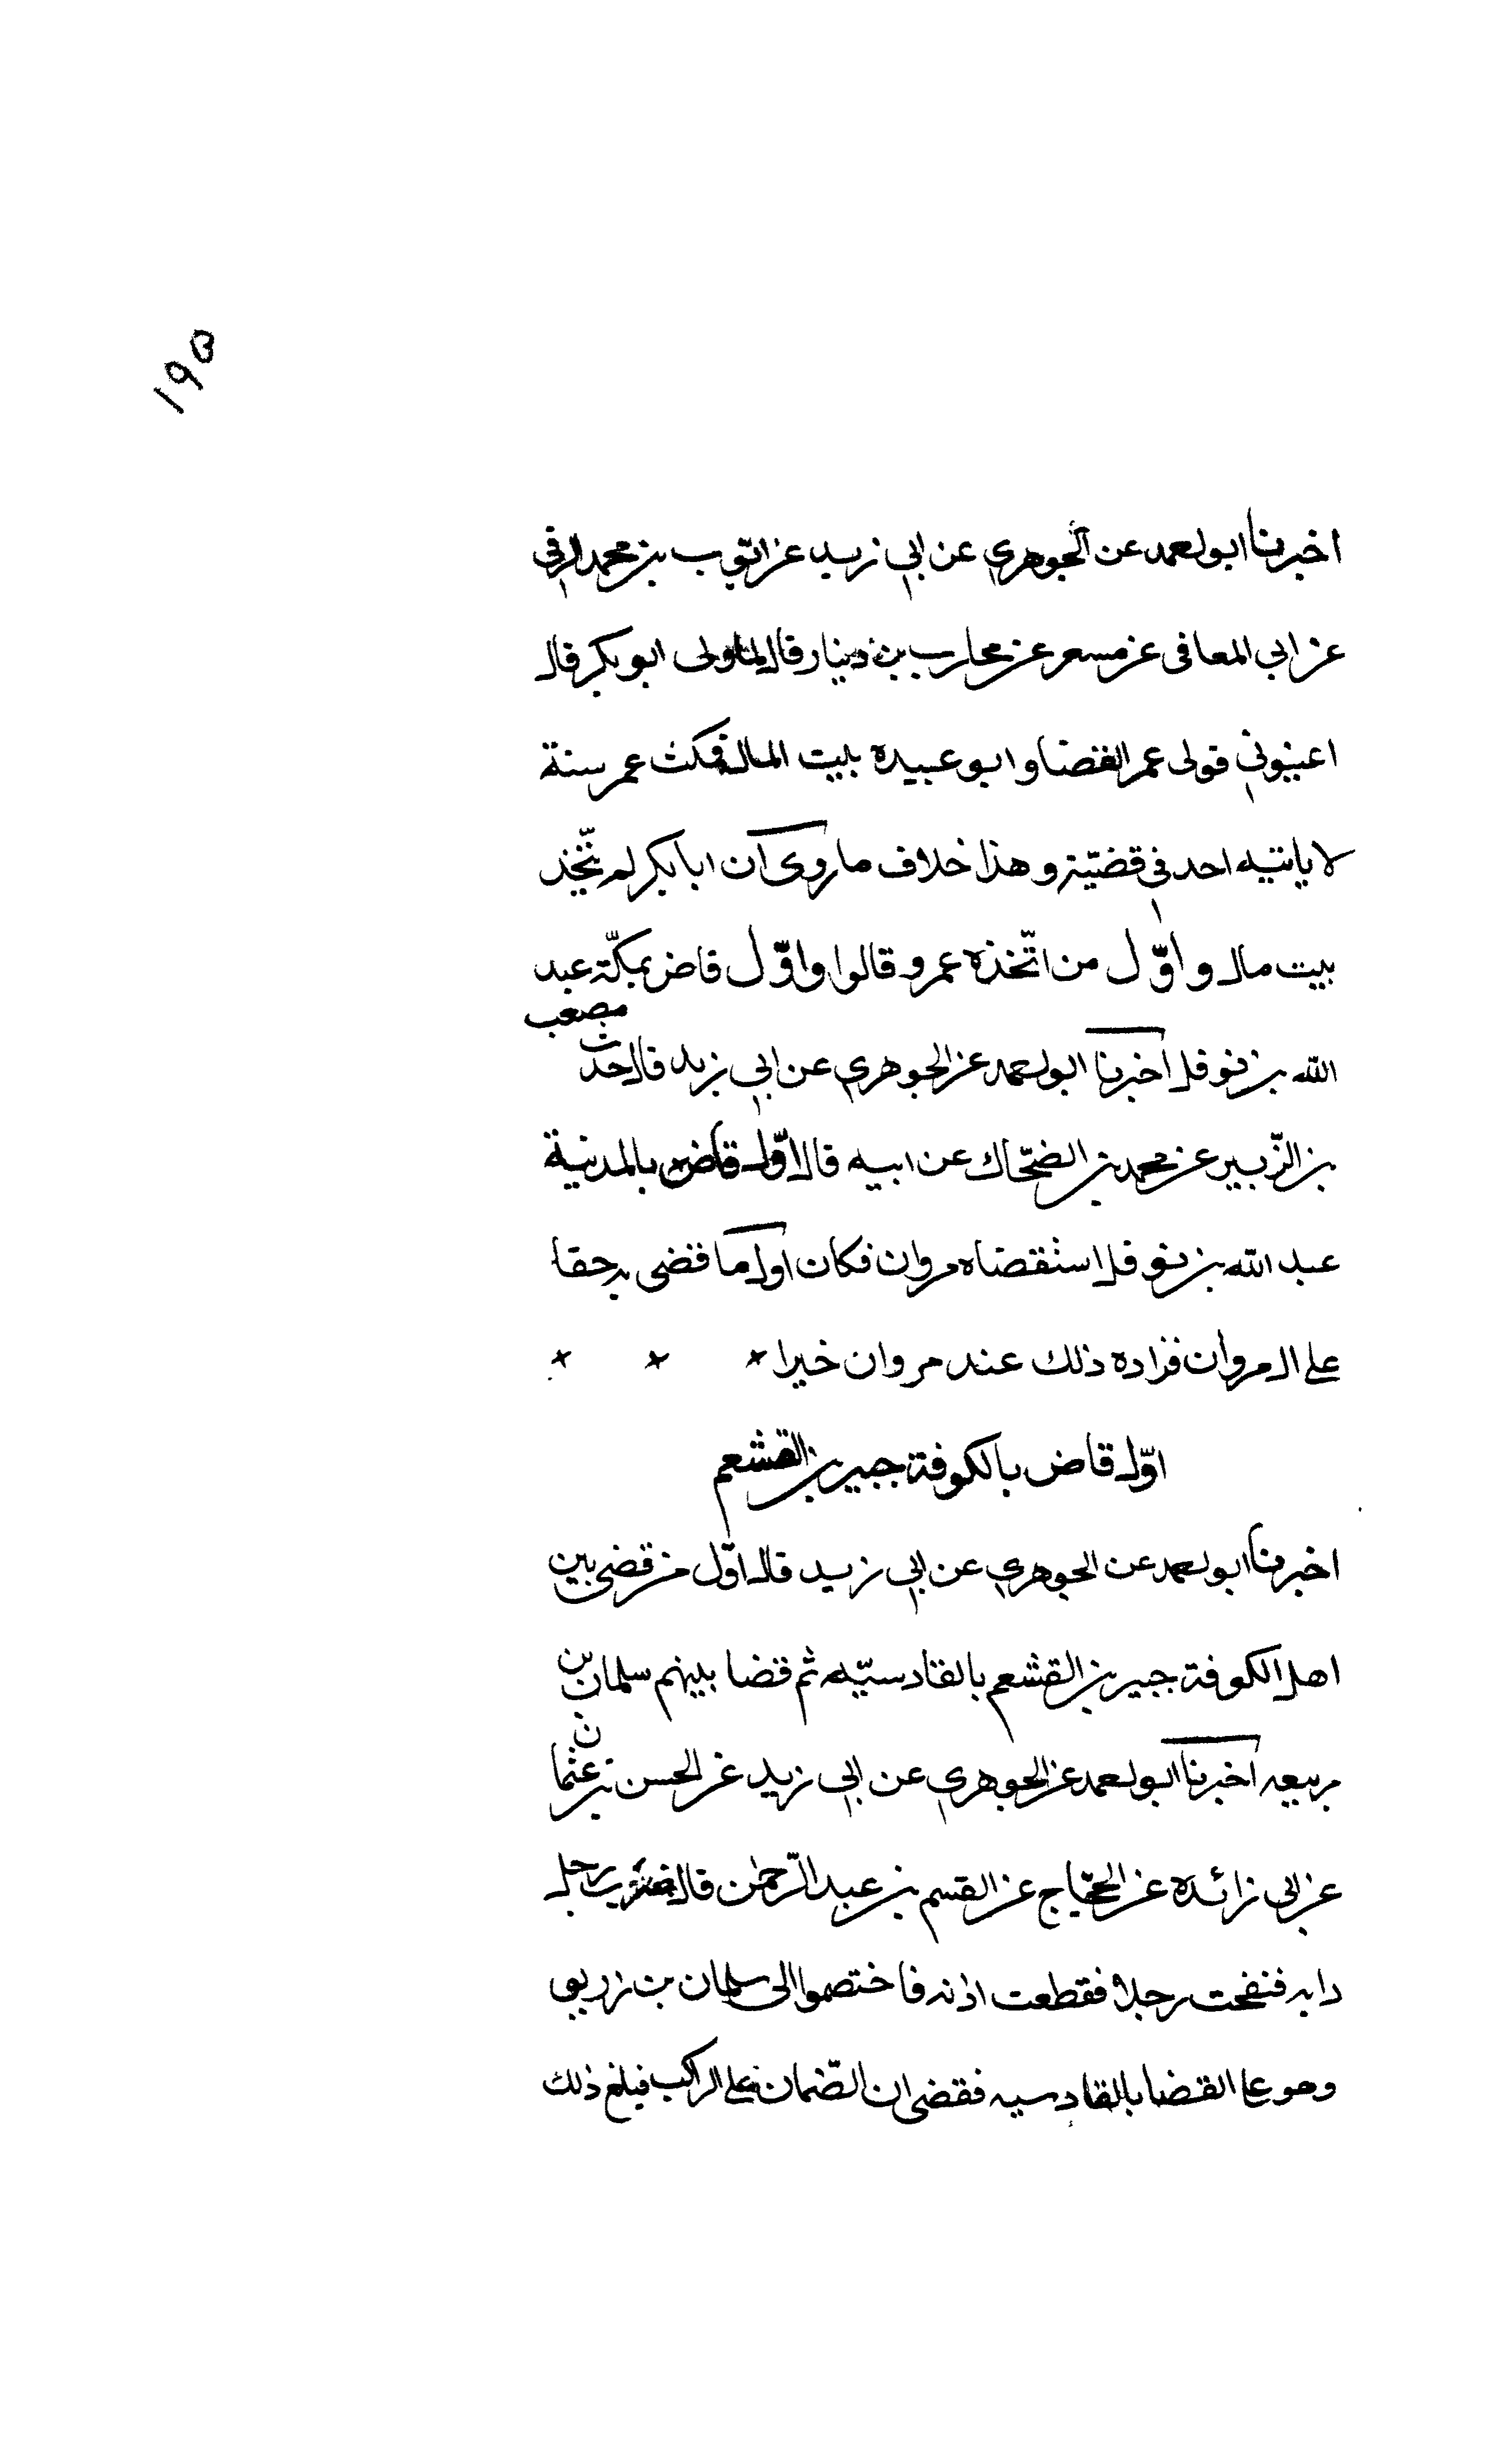 ١٩٥
اخبرنا ابو احمد عن الجوهري عن ابي زيد عن ايّوب بن محمد الرقي
عن ابي المعافى عن مسعر عن محارب بن دينار قال لما ولى ابو بكر قال
اعينوني فولى عمر القضا وابو عبيدة بيت المال فمكث عمر سنة
لا ياتيه احد في قضيّة وهذا خلاف ما روى ان ابا بكر لم يتّخذ
بيت مال واوّل من اتّخذه عمر وقالوا واوّل قاض بمكّة عبد
الله بن نوفل اخبرنا ابو احمد عن الجوهري عن ابي زيد قال حدث مصعب
بن الزّبير عن محمد بن الضحّاك عن ابيه قال اوّل قاض بالمدينة
عبد الله بن نوفل استقضاه مروان فكان اول ما قضى به حقا
على ال مروان فزاده ذلك عند مروان خيرا
اوّل قاض بالكوفة جبير بن القشعم
اخبرنا ابو احمد عن الجوهري عن ابي زيد قال اوّل من قضى بين
اهل الكوفة جبير بن القشعم بالقادسيّه ثم قضا بينهم سلمان بن
ربيعه اخبرنا ابو احمد عن الجوهري عن ابي زيد عن الحسن بن عثمان
عن ابي زائدة عن الحجّاج عن القسم بن عبد الرّحمن قال ضرب رجل
دابه فنفحت رجلا فقطعت اذنه فاختصموا الى سلمان بن
وهو على القضا بالقادسيه فقضى ان الضّمان على الراكب فبلغ ذلك